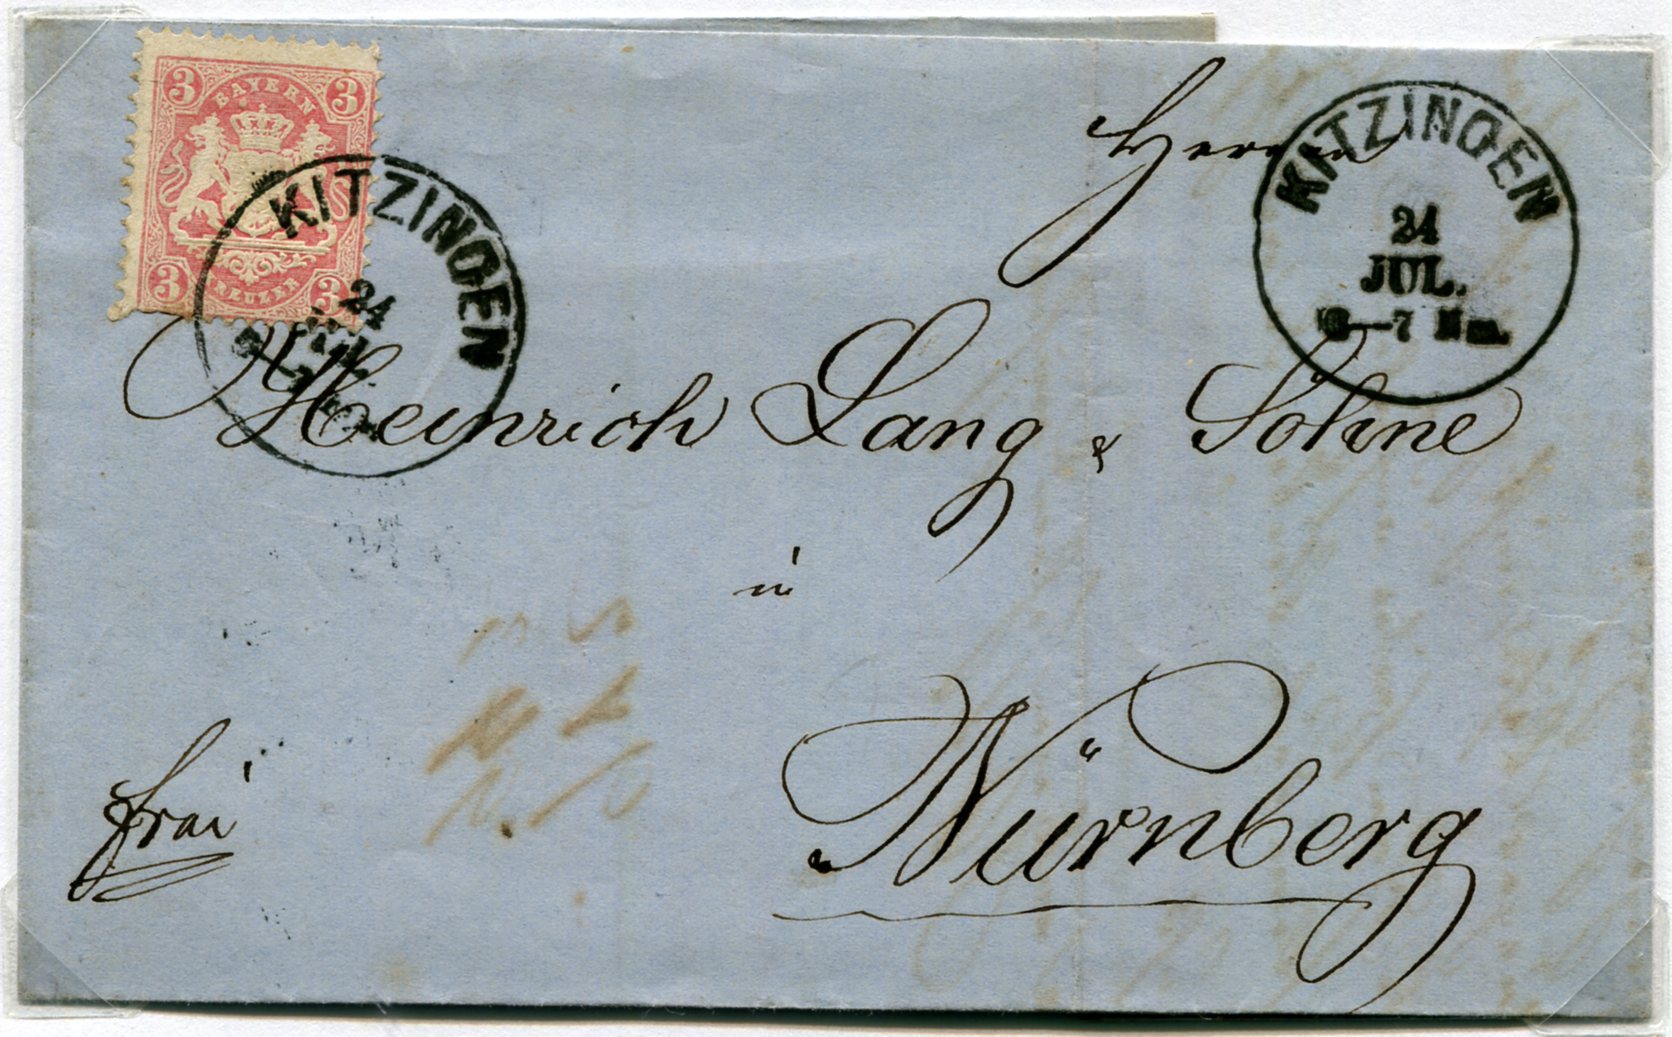 3 3
BAYERN
3 KREUZER 3
KITZINGEN
24
KITZINGEN
24
JUL.
6—7 Nm.
Herren
Heinrich Lang & Söhne
in
Nürnberg
frei